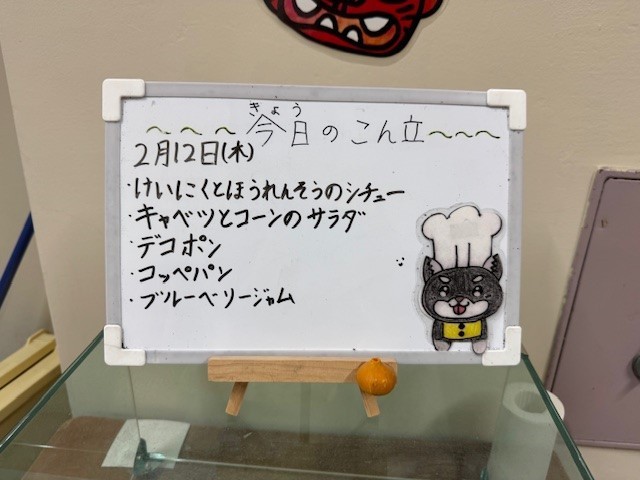 きょう
～～～今日のこん立～～～
2月12日(木)
・けいにくとほうれんそうのシチュー
・キャベツとコーンのサラダ
・デコポン
・コッペパン
・ブルーベリージャム